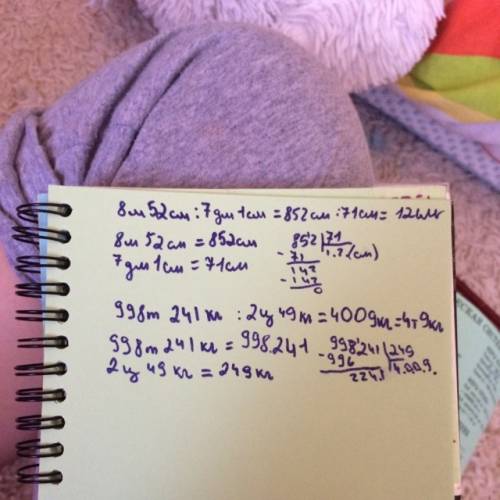 8м 52см : 7дм 1см = 852см : 71см = 12см
8м 52см = 852см
7дм 1см = 71см
852 71
- 71 1.2 (см)
142
- 142
0
998т 241кг : 2ц 49кг = 4009кг = 4т9кг
998т 241кг = 998.241
2ц 49кг = 249кг
998241 249
- 996 4.0.0.9.
2241